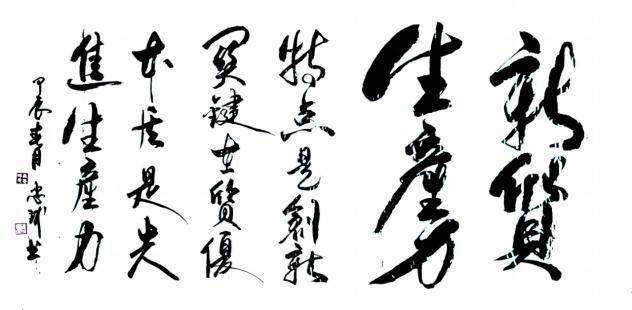 新質
生產力
特点是創新
関鍵在質優
本质是先
進生產力
甲辰春月 忠